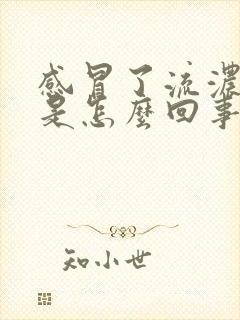 感冒了流濃
是怎麼回事
知小世